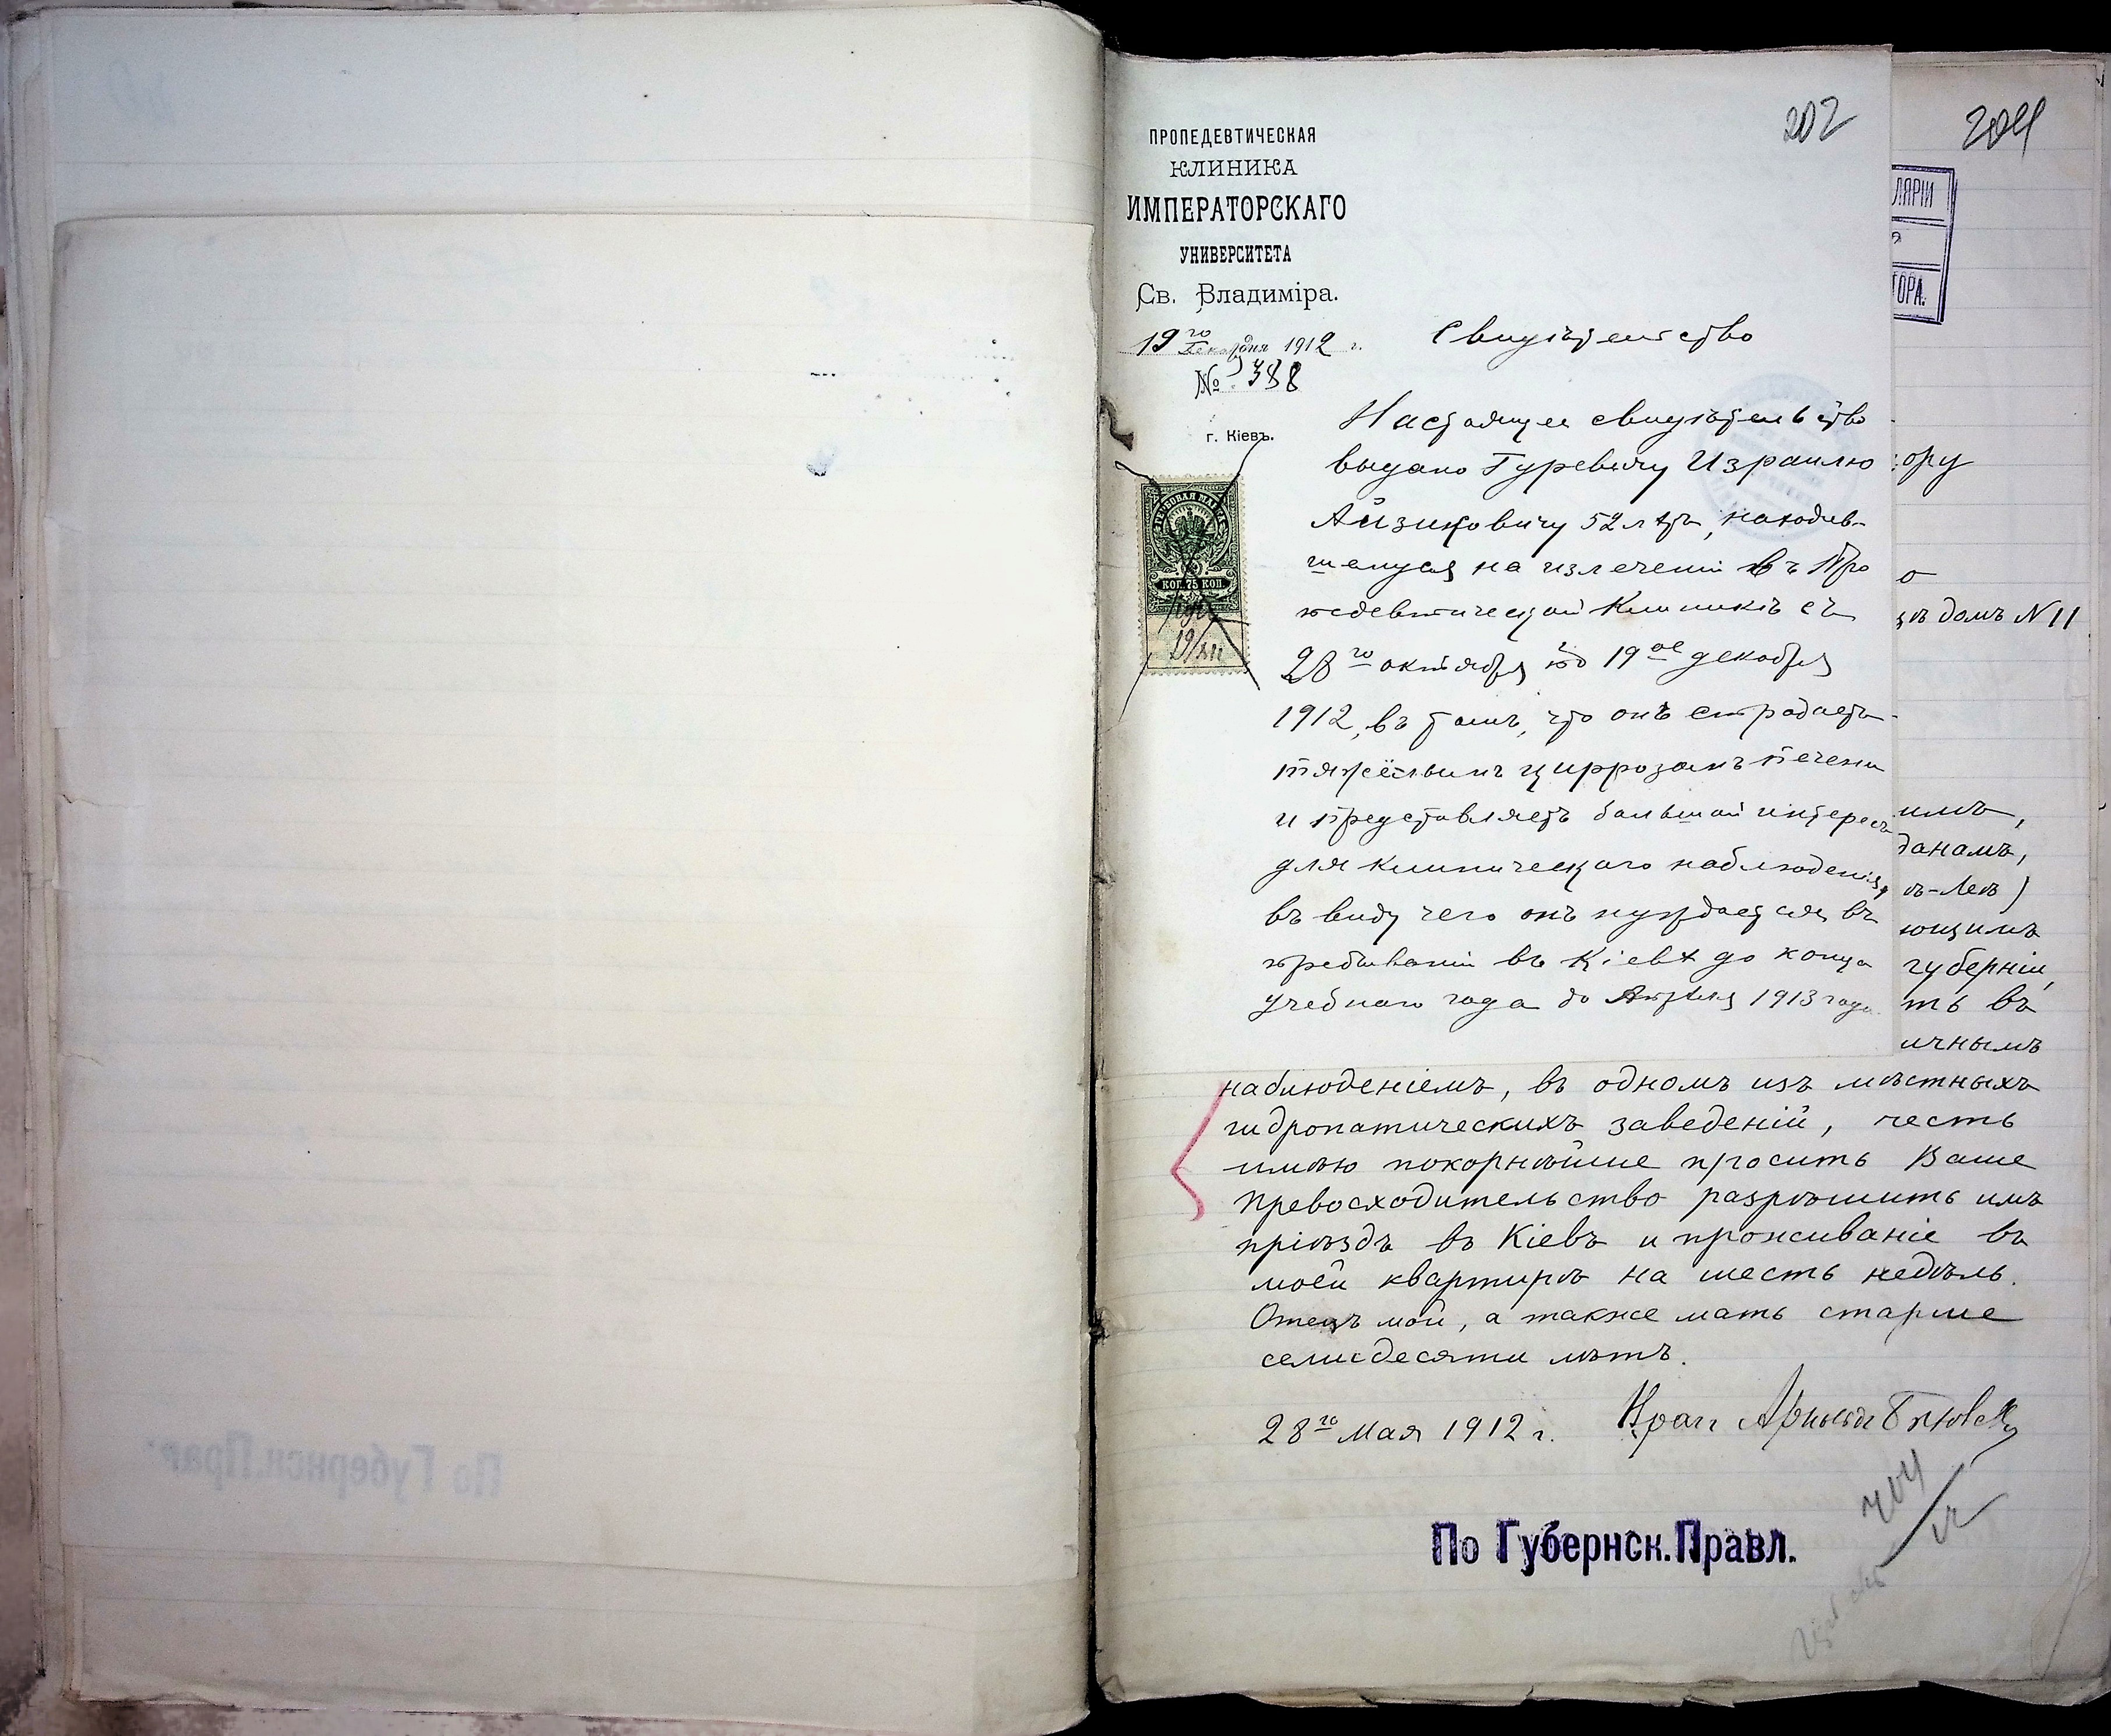 202
204
ПРОПЕДЕВТИЧЕСКАЯ
КЛИНИКА
ИМПЕРАТОРСКАГО
УНИВЕРСИТЕТА
Св. Владиміра.
19го Декабря 1912 г.
№ 388
г. Кіевъ.
ГЕРБОВАЯ МАРКА
КОП. 75 КОП.
19/XII
Свидѣтельство
Настоящее свидѣтельство
выдано Гуревичу Израилю
Айзиковичу 52 лѣтъ, находив-
шемуся на излеченіи въ Про
педевтической Клиникѣ съ
28го октября по 19ое декабря
1912, въ томъ, что онъ страдаетъ
тяжёлымъ циррозомъ печени
и представляетъ большой интересъ
для клиническаго наблюденія,
въ виду чего онъ нуждается въ
пребываніи въ Кіевѣ до конца
учебнаго года до Апрѣля 1913 года
ЛЯРІИ
ТОРА.
ору
о
въ домъ N 11
имъ,
данамъ,
ъ-Левъ)
ющимъ
губерніи,
ть въ
ичнымъ
наблюденіемъ, въ одномъ изъ мѣстныхъ
гидропатическихъ заведеній, честь
имѣю покорнѣйше просить Ваше
Превосходительство разрѣшить имъ
пріѣздъ въ Кіевъ и проживаніе въ
моей квартирѣ на шесть недѣль.
Отецъ мой, а также мать старше
семидесяти лѣтъ.
28го Мая 1912 г.
По Губернск.Правл.
По Губернск.Прав